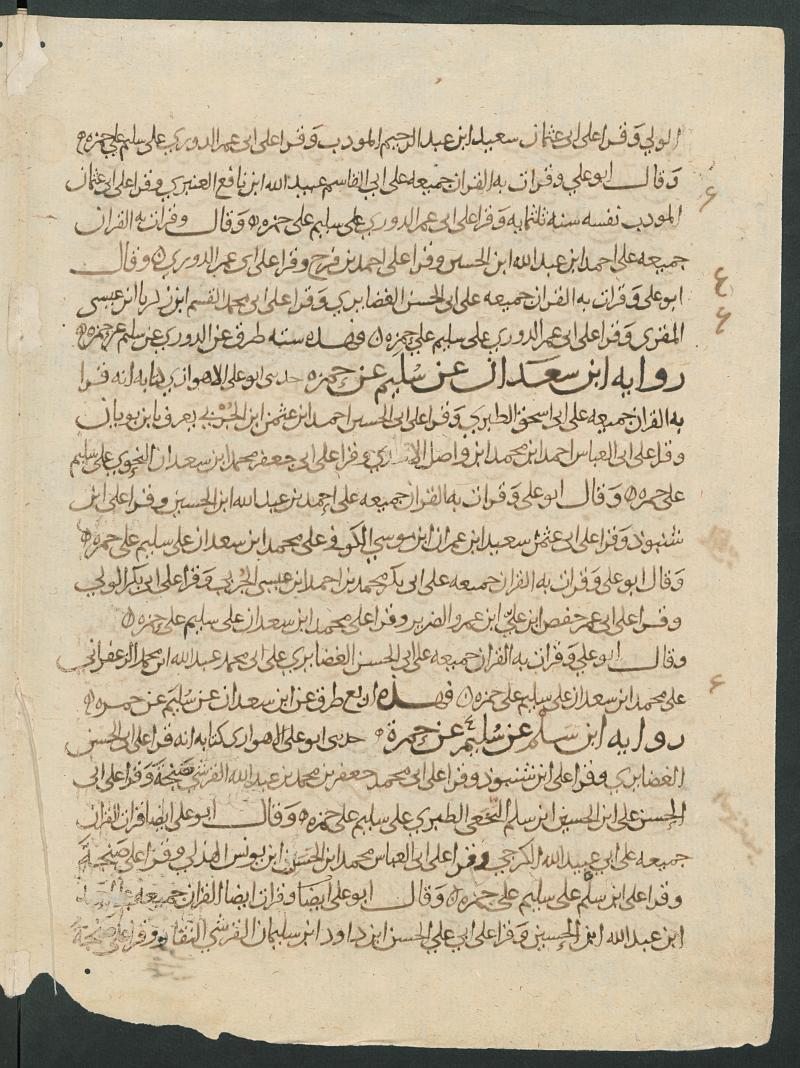 الولي وقرا على ابى عثمان سعيد ابن عبد الرحيم المودب وقرا على ابى عمر الدوري على سليم على حمزه
وقال ابو على وقرات به القران جميعه على ابي القاسم عبيد الله ابن نافع العنبري وقرا على ابى عثمان
المودب نفسه سنه ثلثمايه وقرا على ابى عمر الدوري على سليم على حمزه وقال وقرات به القران
جميعه على احمد ابن عبد الله ابن الحسين وقرا على احمد بن فرح وقرا على ابى عمر الدوري وقال
ابو على وقرات به القران جميعه على ابى الحسن الغضايري وقرا على ابى محمد القسم ابن زكريا ابن عيسى
المقرى وقرا على ابى عمر الدوري على سليم على حمزه فهذه سته طرق عن الدوري عن سليم عن حمزه
روايه ابن سعدان عن سُليم عن حمزه حدثنى ابو على الاهوازي كتابه انه قرا
به القران جميعه على ابى اسحق الطبري وقرا على ابى الحسين احمد ابن عثمن ابن الحربي يعرف بابن بويان
وقرا على ابى العباس احمد ابن محمد ابن واصل وقرا على ابى جعفر محمد ابن سعدان النحوي على سليم
على حمزه وقال ابو على وقرات به القران جميعه على احمد بن عبد الله ابن الحسين وقرا على ابن
شنبود وقرا على ابى عثمن سعيد ابن عمران ابن موسى الكوفى على محمد ابن سعدان على سليم على حمزه
وقال ابو على وقرات به القران جميعه على ابى بكر محمد بن احمد ابن عيسى الحربي وقرا على ابى بكر الولي
وقرا على ابى عمر حفص ابن على ابن عمرو الضرير وقرا على محمد ابن سعدان على سليم على حمزه
وقال ابو علي وقرات به القران جميعه على ابى الحسن الغضايري على ابى محمد عبد الله ابن محمد الزعفرانى
على محمد ابن سعدان على سليم على حمزه فهذه اربع طرق عن ابن سعدان عن سُليم عن حمزه
روايه ابن سَلْم عن سُليم عن حمزة حدثنى ابو على الاهوازى كتابه انه قرا على ابى الحسن
الغضايري وقرا على ابن شنبود وقرا على ابى محمد جعفر بن محمد بن عبد الله القرشي صَنْجَة وقرا على ابى
الحسن على ابن الحسين ابن سلم النخعى الطبري على سليم على حمزه وقال ابو على ايضا قرات القران
جميعه على ابى عبيد الله الكرجي وقرا على ابى العباس محمد ابن الحسن ابن يونس الهذلي وقرا على صَنْجَة
وقرا على ابن سلم على سليم على حمزه وقال ابو على ايضا وقرات ايضا القران جميعه على احمد
ابن عبد الله ابن الحسين وقرا على ابي على الحسن ابن داود ابن سليمان القرشي النقار وقرا على صَنْجَة